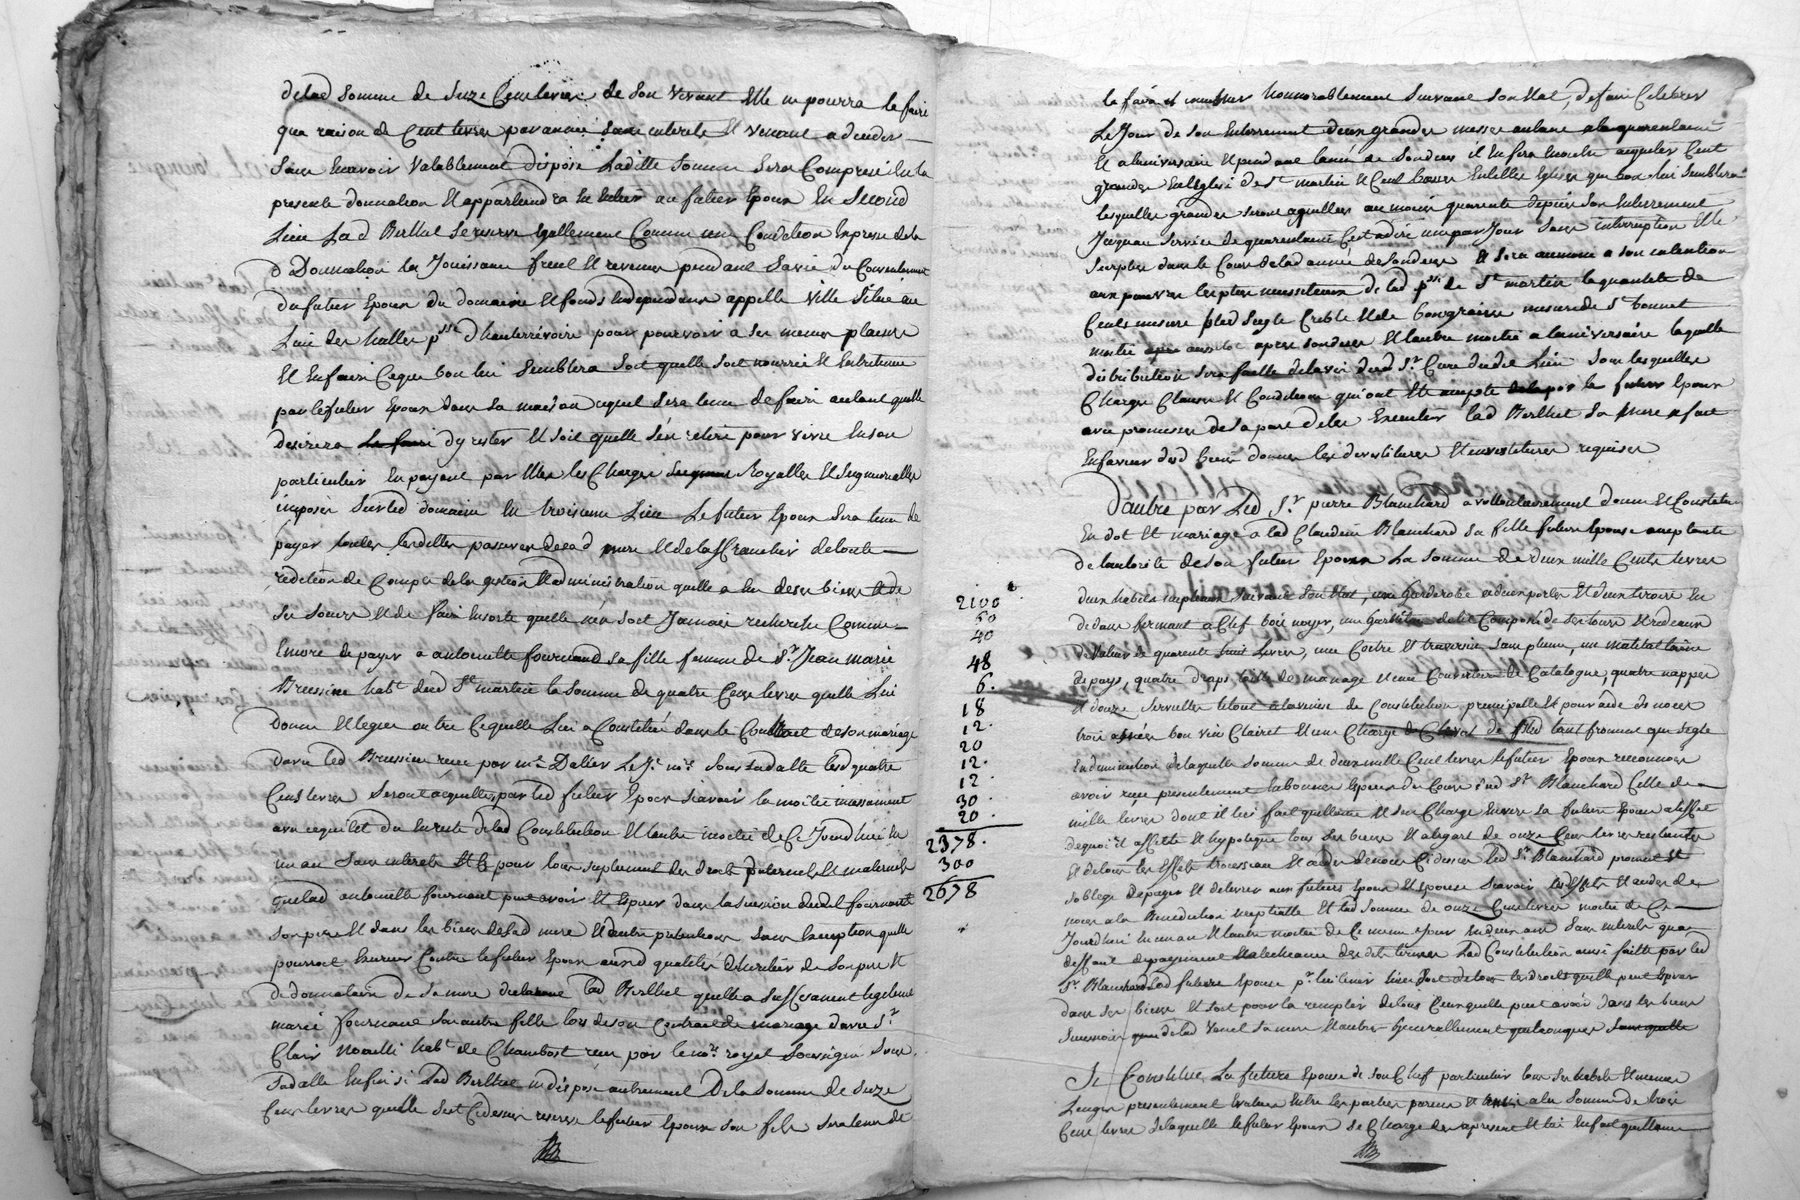 delad somme de seize Cent livres de son vivant Elle ne pourra le faire
qua raison de Cent livres par année sans interets Et venant a deceder
sans En avoir valablement disposé Laditte somme sera Comprise En la
presente donnation Et appartiendra En Entier au futur Epoux En second
Lieu Lad Berthet se reserve Egallement Comme une Condition Expresse de la
d Donnation La Jouissance fruit Et revenus pendant sa vie du Consentement
du futur Epoux du domaine Et fonds independans appellé ville
Lieu des halles psse d'hauterivoire pour pourvoir a ses menus plaisirs
Et En faire Ce que bon lui Semblera soit quelle soit nourrie Et Entretenue
par le futur Epoux dans sa maison auquel sera tenu de faire autant quelle
desirera dy rester Et soit quelle s'en retire pour vivre En son
particulier En payant par Elle les Charges Royalles Et Seigneurialles
imposés sur led domaine En troisieme Lieu Le futur Epoux sera tenu de
payer toutes les dettes passives de lad mere Et de la ffranchir de toute
reddition de Compte de la gestion Et administration quelle a Eu de ses biens Et de
Et de faire En sorte quelle n'en soit Jamais recherchée Comme
Encore de payer a antoinette fournand sa fille femme de Sr Jean marie
Bressieu habt dud St martin la somme de quatre Cens livres quelle Lui
donne Et legue outre Ce quelle Lui a Constitué dans le Contract de son mariage
avec led Bressieu recu par me Dalier Le Je nre sous sa datte lesd quatre
Cens livres seront acquittés par led futur Epoux scavoir la moitié incessament
avec ce qui Est du En reste de lad Constitution Et lautre moitié de Ce Jourdhui En
un an sans interets Et Ce pour tous suplement des droits paternels Et maternels
que lad antoinette fournand peut avoir Et Esperer dans la succession dudit fournand
son pere Et dans les biens de lad mere Et autres pretentions sans Exception quelle
pourroit Exercer Contre le futur Epoux aud qualités d'heritier de son pere Et
de donnataire de sa mere lad Berthet quelle a suffisament legitimé
marie fournand son autre fille lors de son Contract de mariage avec Sr
Clair habt de Chambost recu par le nre royal soussigné sous
sa datte Enfin si Lad Berthet ne dispose autrement De la somme de seize
Cens livres quelle s'est Cy dessus reservé le futur Epoux son fils sera tenu de
2100
60
40
48
6.
18
12.
20
12.
12
30
20.
2378.
300
2678
la faire inhumer honnorablement suivant son Etat, de faire Celebrer
Le Jour de son Enterrement deux grandes messes autant a la quarantaine
Et a lanniversaire Et pendant lannée de son deces il En fera Encore acquitter Cent
grandes En Leglise de St martin Et Cent basses En telles Eglises que bon lui Semblera
lesquelles grandes seront acquittées au moins quarante depuis son Enterrement
Jusquau service de quarantaine Cest a dire une par Jour sans interruption Et le
surplus dans le Cours de lad année de son deces Et sera aumoné a son intention
aux pauvres les plus necessiteux de lad psse de St martin la quantité de
Cents mesure bled seigle Crible Et de bon grain mesure de St bonnet
moitié aussitot apres son deces Et lautre moitié a lanniversaire laquelle
distribution sera faitte de lavis dud Sr Curé dudit Lieu sous lesquelles
Charges Clauses Et Conditions qui ont Eté accepté par le futur Epoux
avec promesses de sa part de les Executer lad Berthet sa mere a fait
En faveur dud heritier donne les devestitures Et investitures requises
D'autre part Led Sr pierre Blanchard a vollontairement donné Et Constitué
En dot Et mariage a lad Claudine Blanchard sa fille future Epouse acceptante
de lautorité de son futur Epoux La somme de deux mille Cents livres
deux habits nuptiaux suivant son Etat, une garderobe a deux portes Et deux tiroirs En
dedans fermant a Clef bois noyer, une garniture de lit Composée de ses tours Et rideaux
de valeur de quarente huit Livres, une Coitre Et traversin sans plume, un matelat laine
de pays, quatre draps toille de menage Et une Couverture de Catalogne, quatre nappes
Et douze serviettes le tout a lavenue de Constitution principalle Et pour aide de noces
trois anées bon vin Clairet Et une Charge de Cheval de bled tant froment que seigle
En diminution de laquelle somme de deux mille Cent livres le futur Epoux reconnoit
avoir recu presentement Led Sr Blanchard Celle de
mille livres dont il lui fait quittance Et s'en Charge Envers sa future Epouse a leffet
dequoi il affecte Et hypoteque tous ses biens Et a legard de onze Cent livres restantes
Et de tous les Effets trousseau Et aides de noces Cy dessus led Sr Blanchard promet Et
soblige de payer Et delivrer aux futurs Epoux Et Epouse scavoir les Effets Et aides de
noces a la Benediction nuptialle Et lad somme de onze Cent livres moitié de Ce
Jourdhui En un an Et lautre moitié de Ce meme Jour En deux ans sans interets qua
deffaut de payement Et a lecheance des dits termes Lad Constitution ainsi faitte par led
Sr Blanchard a lad future Epouse pr lui tenir lieu de tous les droits quelle peut Esperer
dans ses biens Et soit pour la remplir de tous Ceux quelle peut avoir dans les biens
succession de lad sa mere Et autres generallement quelconques sans quelle
Se Constitue La future Epouse de son Chef particulier tous ses habits Et menus
Linges presentement Evalués Entre les parties parens Et amis a la somme de trois
Cent livres de laquelle le futur Epoux se Charge des a present Et lui En fait quittance